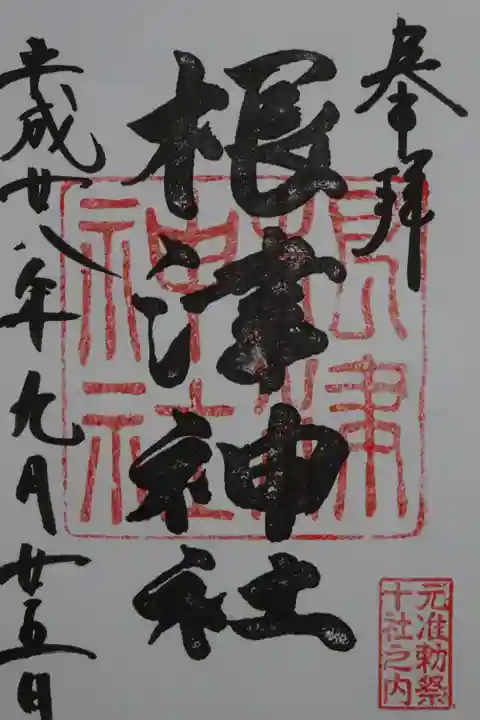 奉拝
根津神社
根津
神社
平成廿八年九月廿五日
元准勅祭
十社之内